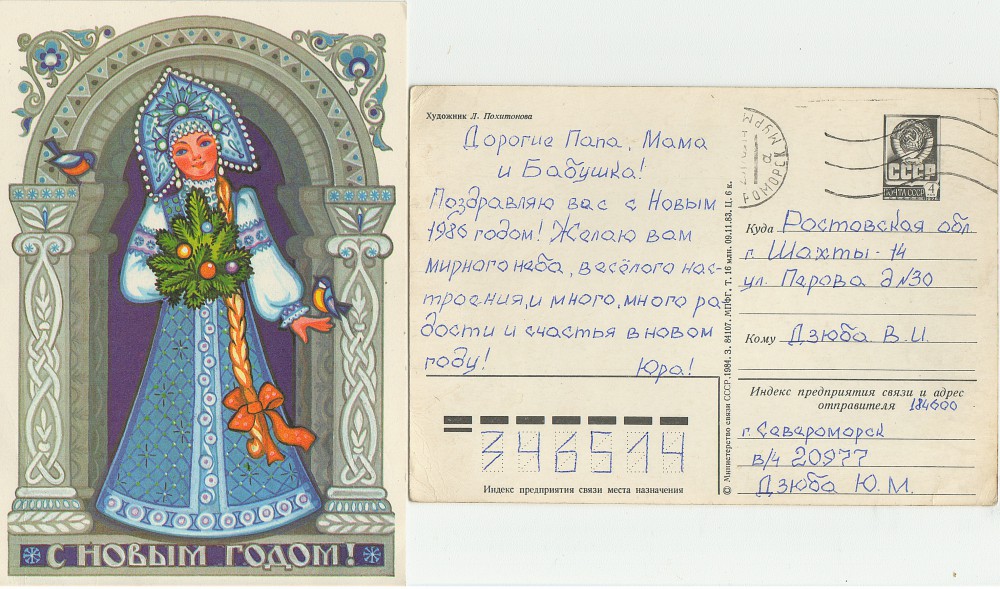 С НОВЫМ ГОДОМ!
Художник Л. Похитонова
Дорогие Папа, Мама
и Бабушка!
Поздравляю вас с Новым
1986 годом! Желаю вам
мирного неба, весёлого нас-
троения, и много, много ра-
дости и счастья в новом
году!
Юра!
346514
Индекс предприятия связи места назначения
© Министерство связи СССР. 1984. З. 84107. МПФГ. Т. 16 млн. 09.11.83. Ц. 6 к.
РОМОРСК МУРМ
СССР
ПОЧТА СССР
4
Куда Ростовская обл
г. Шахты-14
ул. Перова д N30
Кому Дзюба В.И.
Индекс предприятия связи и адрес
отправителя 184600
г. Североморск
в/ч 20977
Дзюба Ю.М.